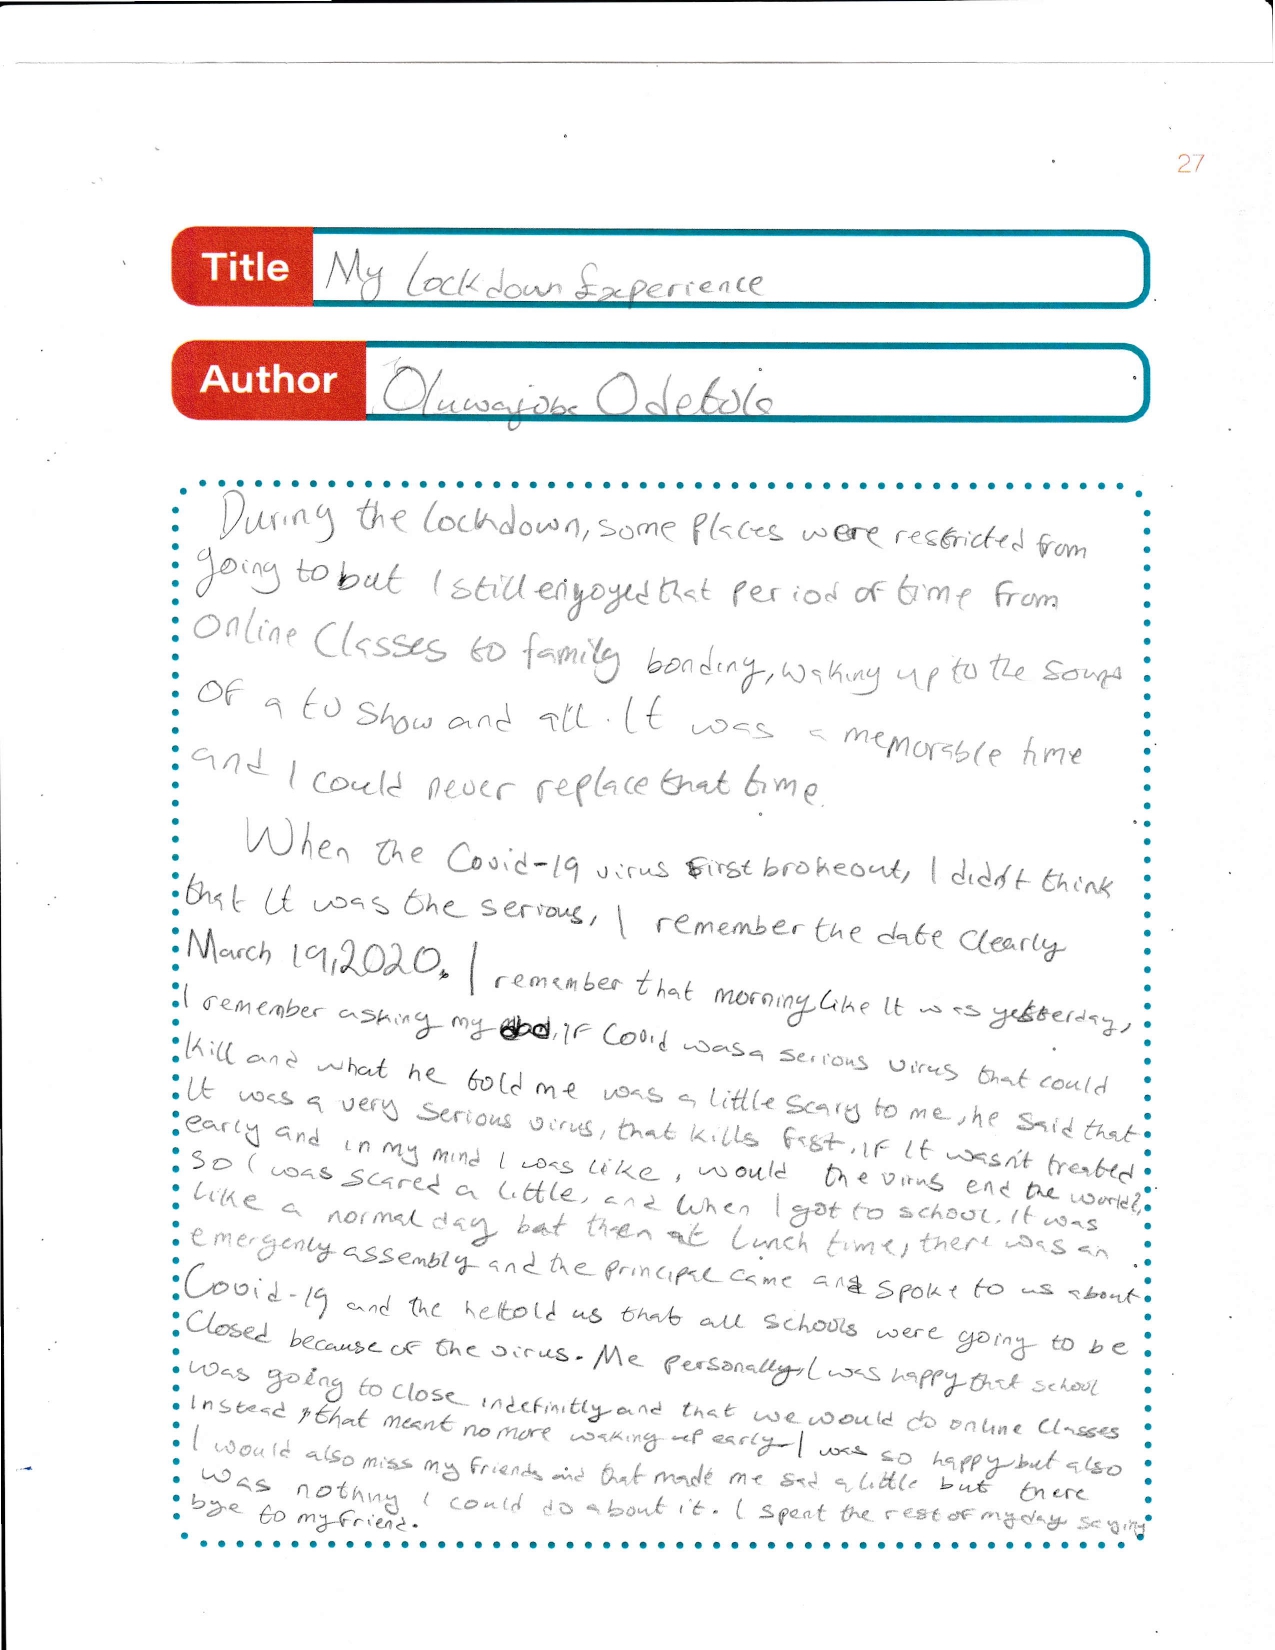 27
Title My Lockdown Experience
Author Oluwajoba Odetola
During the lockdown, some places were restricted from
going to but I still enjoyed that period of time from
online classes to family bonding, waking up to the sound
of a tv show and all. It was a memorable time
and I could never replace that time.
When the Covid-19 virus first brokeout, I didn't think
that it was the serious, I remember the date clearly
March 19, 2020. I remember that morning like it was yesterday,
I remember asking my dad, if Covid was a serious virus that could
kill and what he told me was a little scary to me, he said that
it was a very serious virus, that kills fast, if it wasn't treated
early and in my mind I was like, would the virus end the world?,
so I was scared a little, and when I got to school. It was
like a normal day but then at lunch time, there was an
emergenly assembly and the principal came and spoke to us about
Covid-19 and the he told us that all schools were going to be
closed because of the virus. Me personally, I was happy that school
was going to close indefinitly and that we would do online classes
instead, that meant no more waking up early. I was so happy but also
I would also miss my friends and that made me sad a little but there
was nothing I could do about it. I spent the rest of my day saying
bye to my friend.